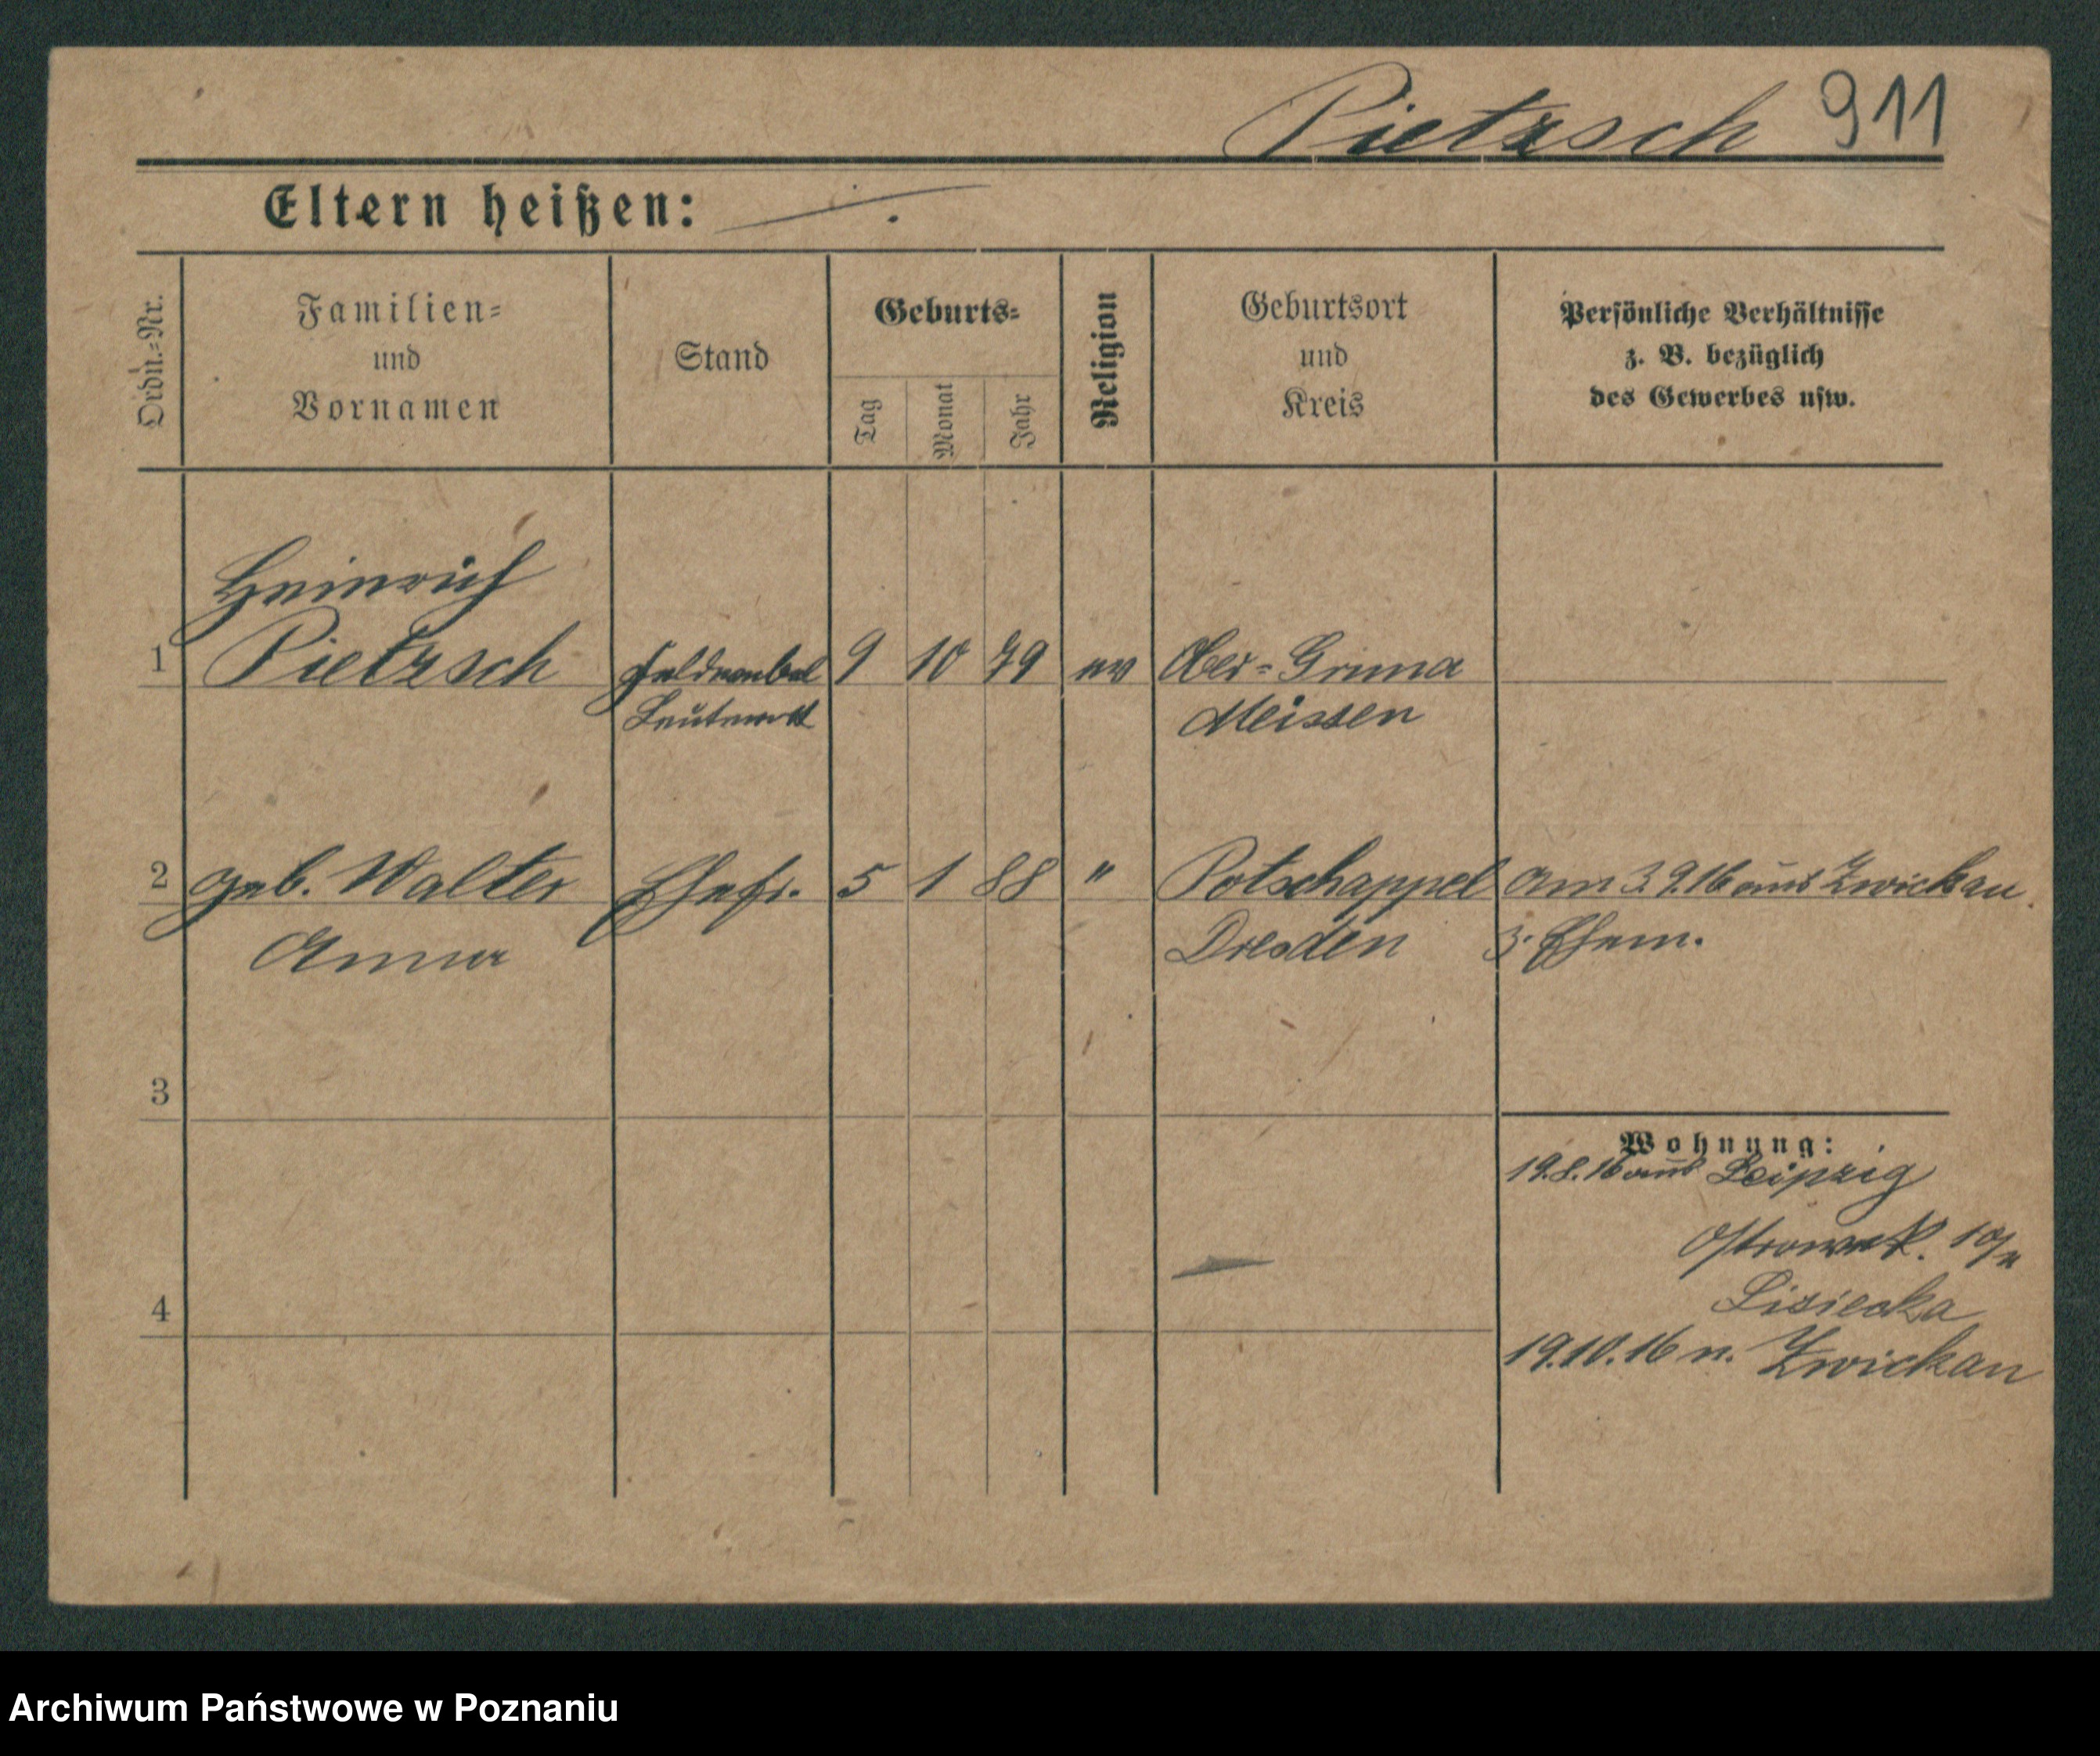 Pietzsch 911
Eltern heißen: ·/.
Ordn.-Nr.
Familien-
und
Vornamen
Stand
Geburts-
Tag
Monat
Jahr
Religion
Geburtsort
und
Kreis
Persönliche Verhältnisse
z. B. bezüglich
des Gewerbes usw.
Heinrich
1 Pietzsch Feldwebel 9 10 79 ev Ober-Gruna
Leutnant Meissen
2 geb. Walter Ehefr. 5 1 88 " Potschappel Am 3.9.16 aus Zwickau.
Anna Dresden z. Ehem.
3
Wohnung:
19.8.16 aus Leipzig
Ostrowek. 10/
Lisiecka
4
19.10.16 n. Zwickau
Archiwum Państwowe w Poznaniu